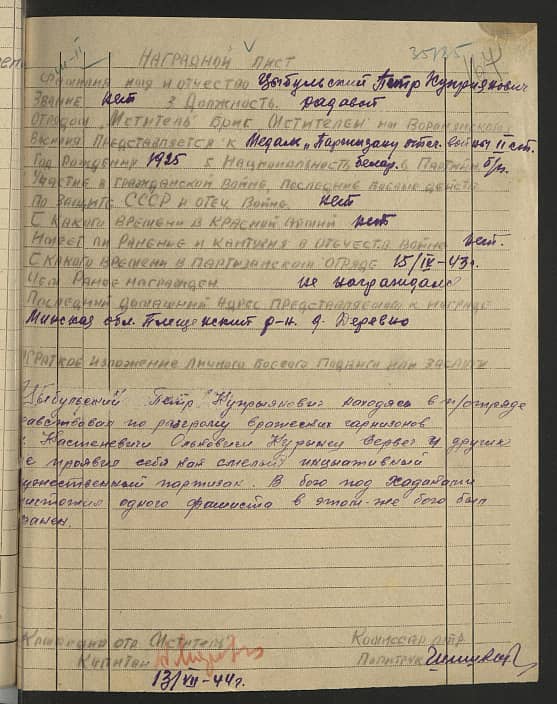 35135
Наградной лист
Фамилия имя и отчество Цыбульский Петр Куприянович
Звание нет 3 Должность рядовой
отрядом "Мститель" бриг. Мстители им Воронянского
звания представляется к Медали "Партизану отеч. войны II ст.
Год Рождения 1925 5 Национальность белар. 6 Партийн б/п.
Участие в гражданской войне, последние боевые действ
по защите СССР и отеч. войне нет
С какого времени в Красной Армии нет
Имеет ли ранение и кантузия в отечеств войне нет.
С какого времени в партизанском отряде 15/IX-43г.
Чем ранее награжден не награждался
Последний домашний адрес представляемого к награде
Минская обл. Плещенский р-н. д. Деревно
Краткое изложение личного боевого подвига или заслуги
Цыбульский Петр Куприянович находясь в п/отряде
авствовал по разгрому вражеских гарнизонов
Костеневичи Ольковичи Куринец и других
е проявив себя как смелый инциативный
жественный партизан. В бою под Ходаками
ичтожил одного фашиста в этом-же бою был
анен.
Командир отр. Мститель Комиссар отр.
Капитан Политрук
13/VII-44г.